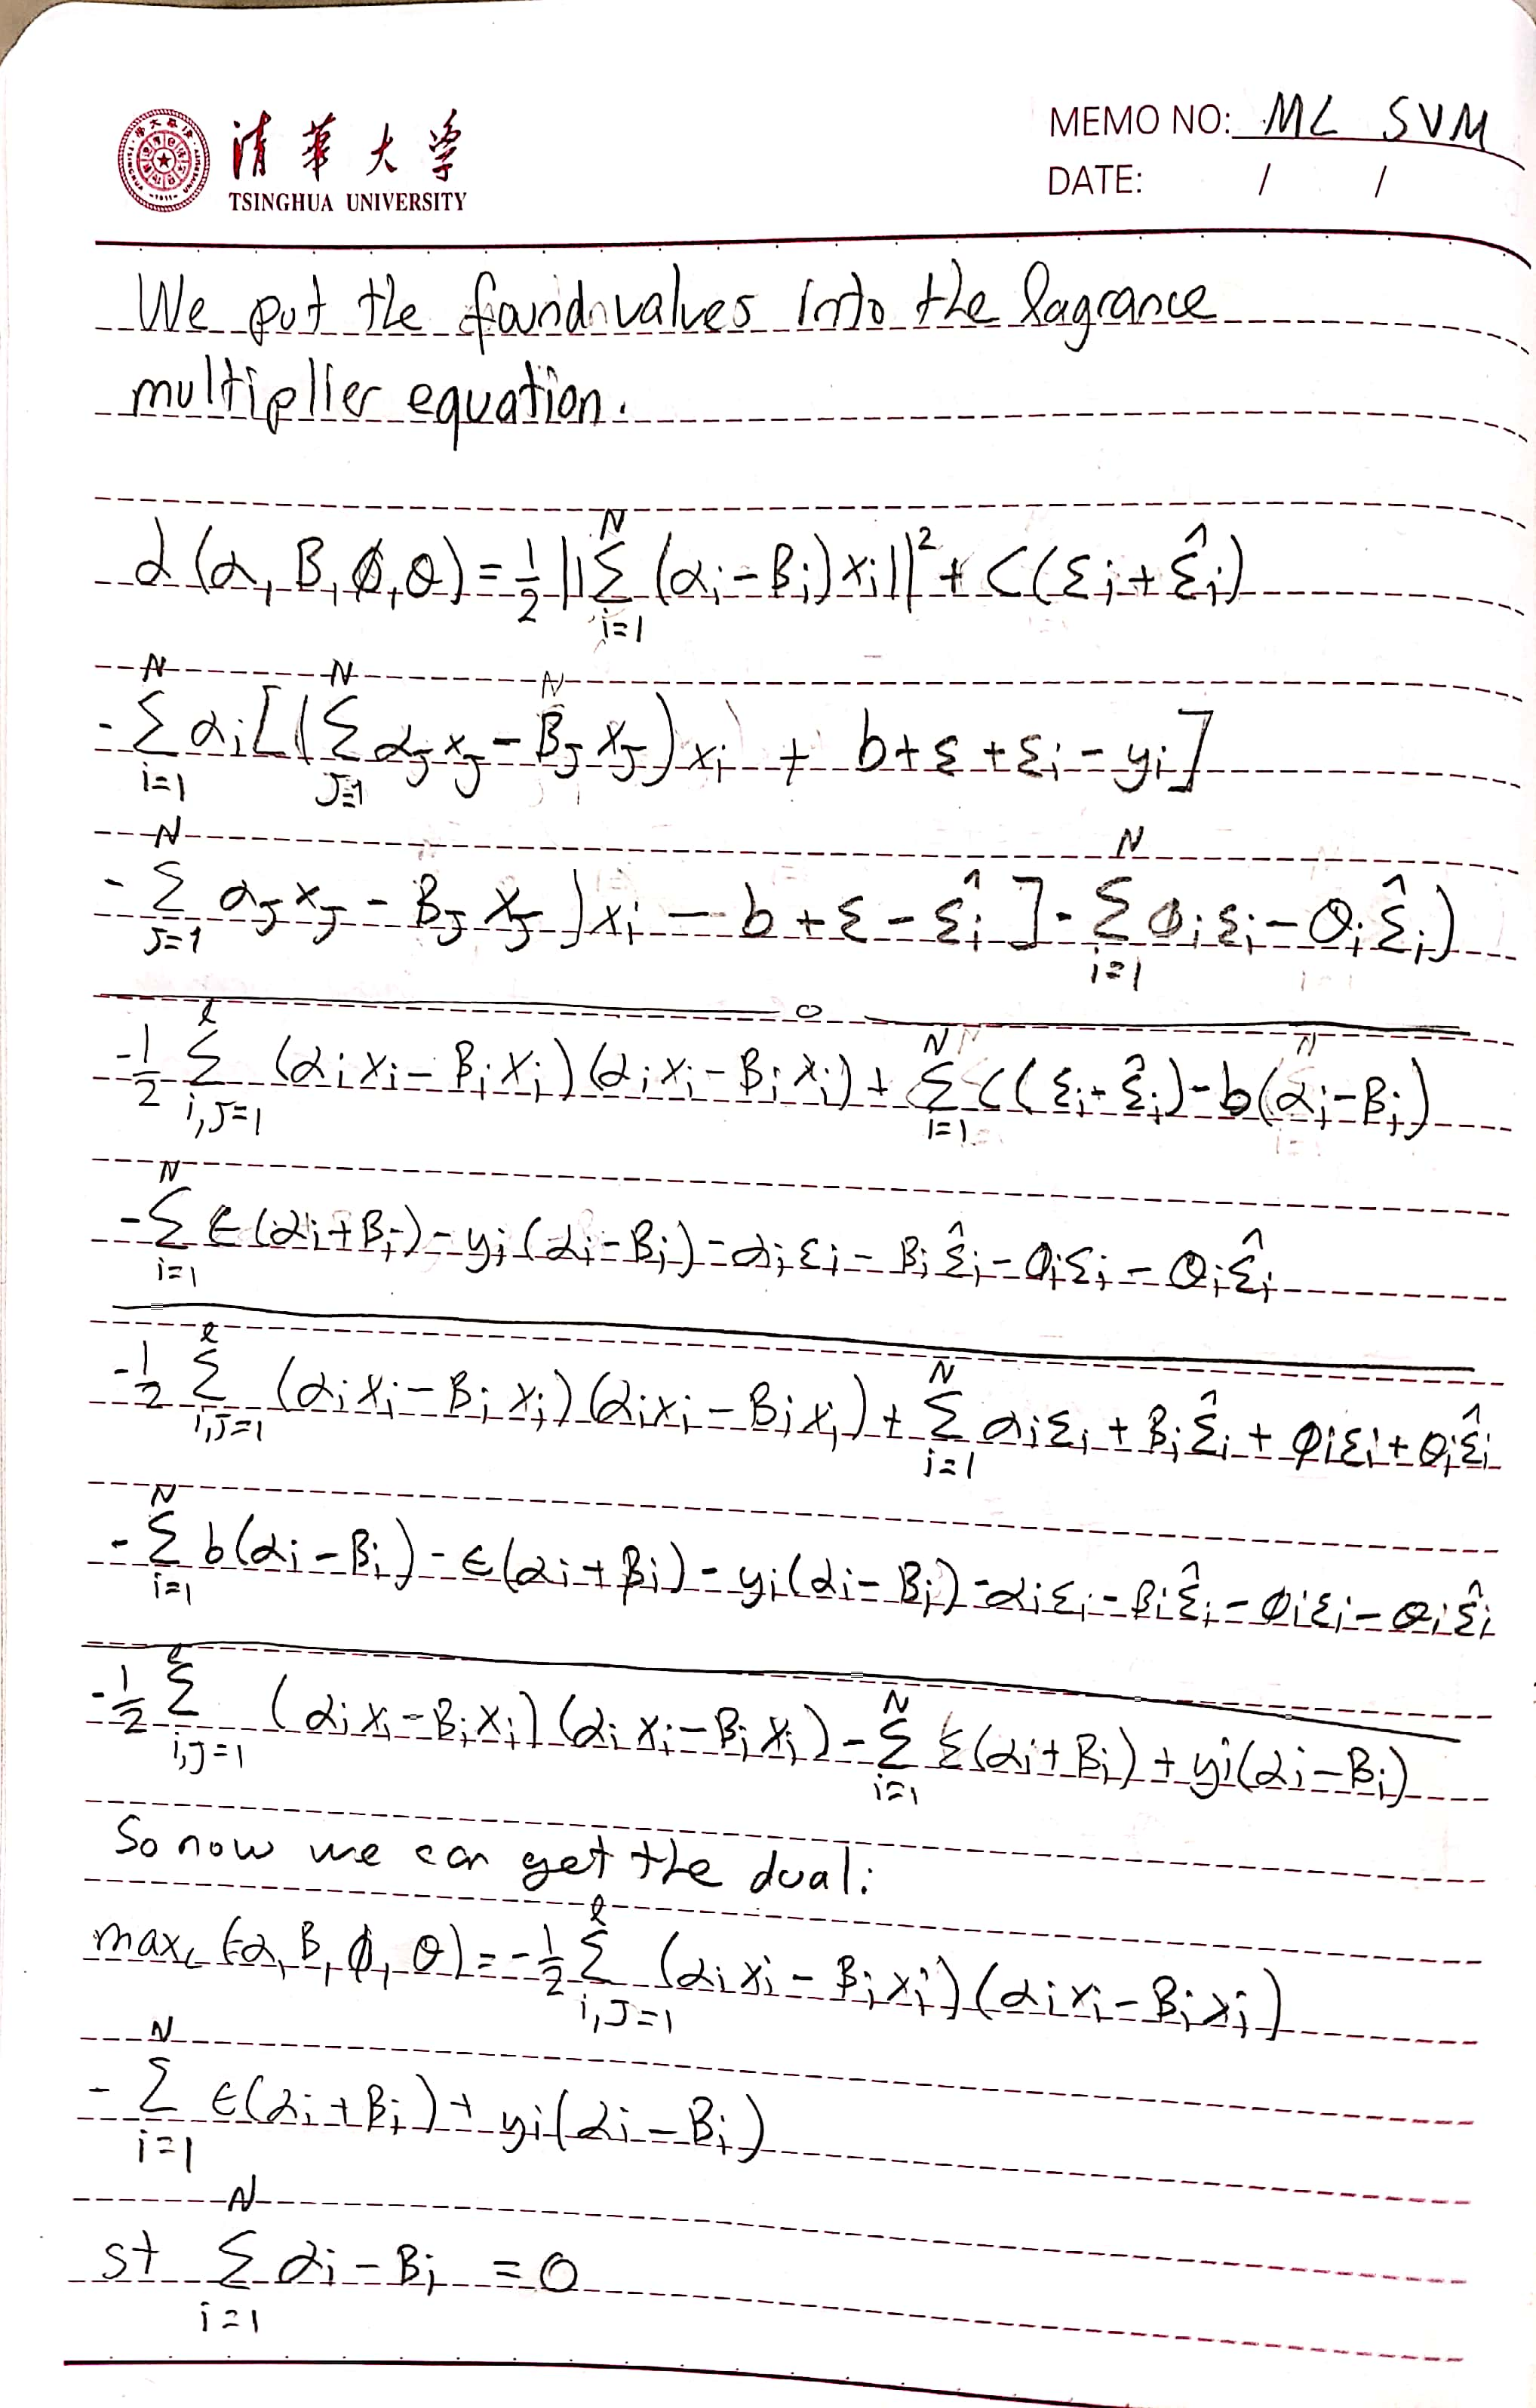 清華大学
TSINGHUA UNIVERSITY
MEMO NO: ML SVM
DATE: / /
We put the found values into the lagrance
multiplier equation.
L(α, B, ϕ, θ) = 1/2 ||Σ_{i=1}^{N} (α_i - B_i) x_i||^2 + C(Σ_i + Σ̂_i)
- Σ_{i=1}^{N} α_i [(Σ_{J=1}^{N} α_J x_J - B_J x_J) x_i + b + ε + ε_i - y_i]
- Σ_{J=1}^{N} α_J x_J - B_J x_J) x_i - b + ε - ε̂_i ] - Σ_{i=1}^{N} ϕ_i ε_i - θ_i ε̂_i)
-1/2 Σ_{i,J=1}^{l} (α_i x_i - B_i x_i)(α_i x_i - B_i x_i) + Σ_{i=1}^{N} C(ε_i + ε̂_i) - b(α_i - B_i)
- Σ_{i=1}^{N} ϵ(α_i + B_i) - y_i(α_i - B_i) - α_i ε_i - B_i ε̂_i - θ_i ε_i - θ_i ε̂_i
-1/2 Σ_{i,J=1}^{l} (α_i x_i - B_i x_i)(α_i x_i - B_i x_i) + Σ_{i=1}^{N} α_i ε_i + B_i ε̂_i + ϕ_i ε_i + θ_i ε̂_i
- Σ_{i=1}^{N} b(α_i - B_i) - ϵ(α_i + B_i) - y_i(α_i - B_i) - α_i ε_i - B_i ε̂_i - ϕ_i ε_i - θ_i ε̂_i
-1/2 Σ_{i,J=1}^{l} (α_i x_i - B_i x_i)(α_i x_i - B_i x_i) - Σ_{i=1}^{N} ε(α_i + B_i) + y_i(α_i - B_i)
So now we can get the dual:
max_L (α, B, ϕ, θ) = -1/2 Σ_{i,J=1}^{l} (α_i x_i - B_i x_i)(α_i x_i - B_i x_i)
- Σ_{i=1}^{N} ϵ(α_i + B_i) + y_i(α_i - B_i)
st Σ_{i=1}^{N} α_i - B_i = 0